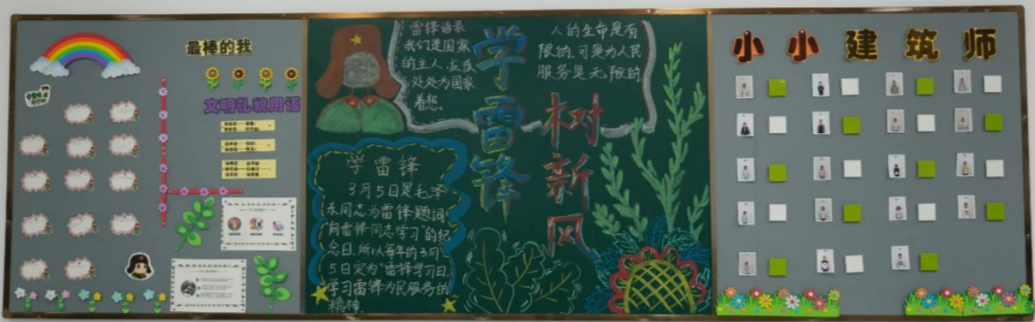 最棒的我
文明礼貌用语
雷锋语录
我们是国家
的主人,应该
处处为国家
着想。
学雷锋
树新风
人的生命是有
限的,可是为人民
服务是无限的
学雷锋
3月5日是毛泽
东同志为雷锋题词
"向雷锋同志学习"的纪
念日,所以每年的3月
5日定为"雷锋学习日,
学习雷锋为民服务的
精神。
小小建筑师